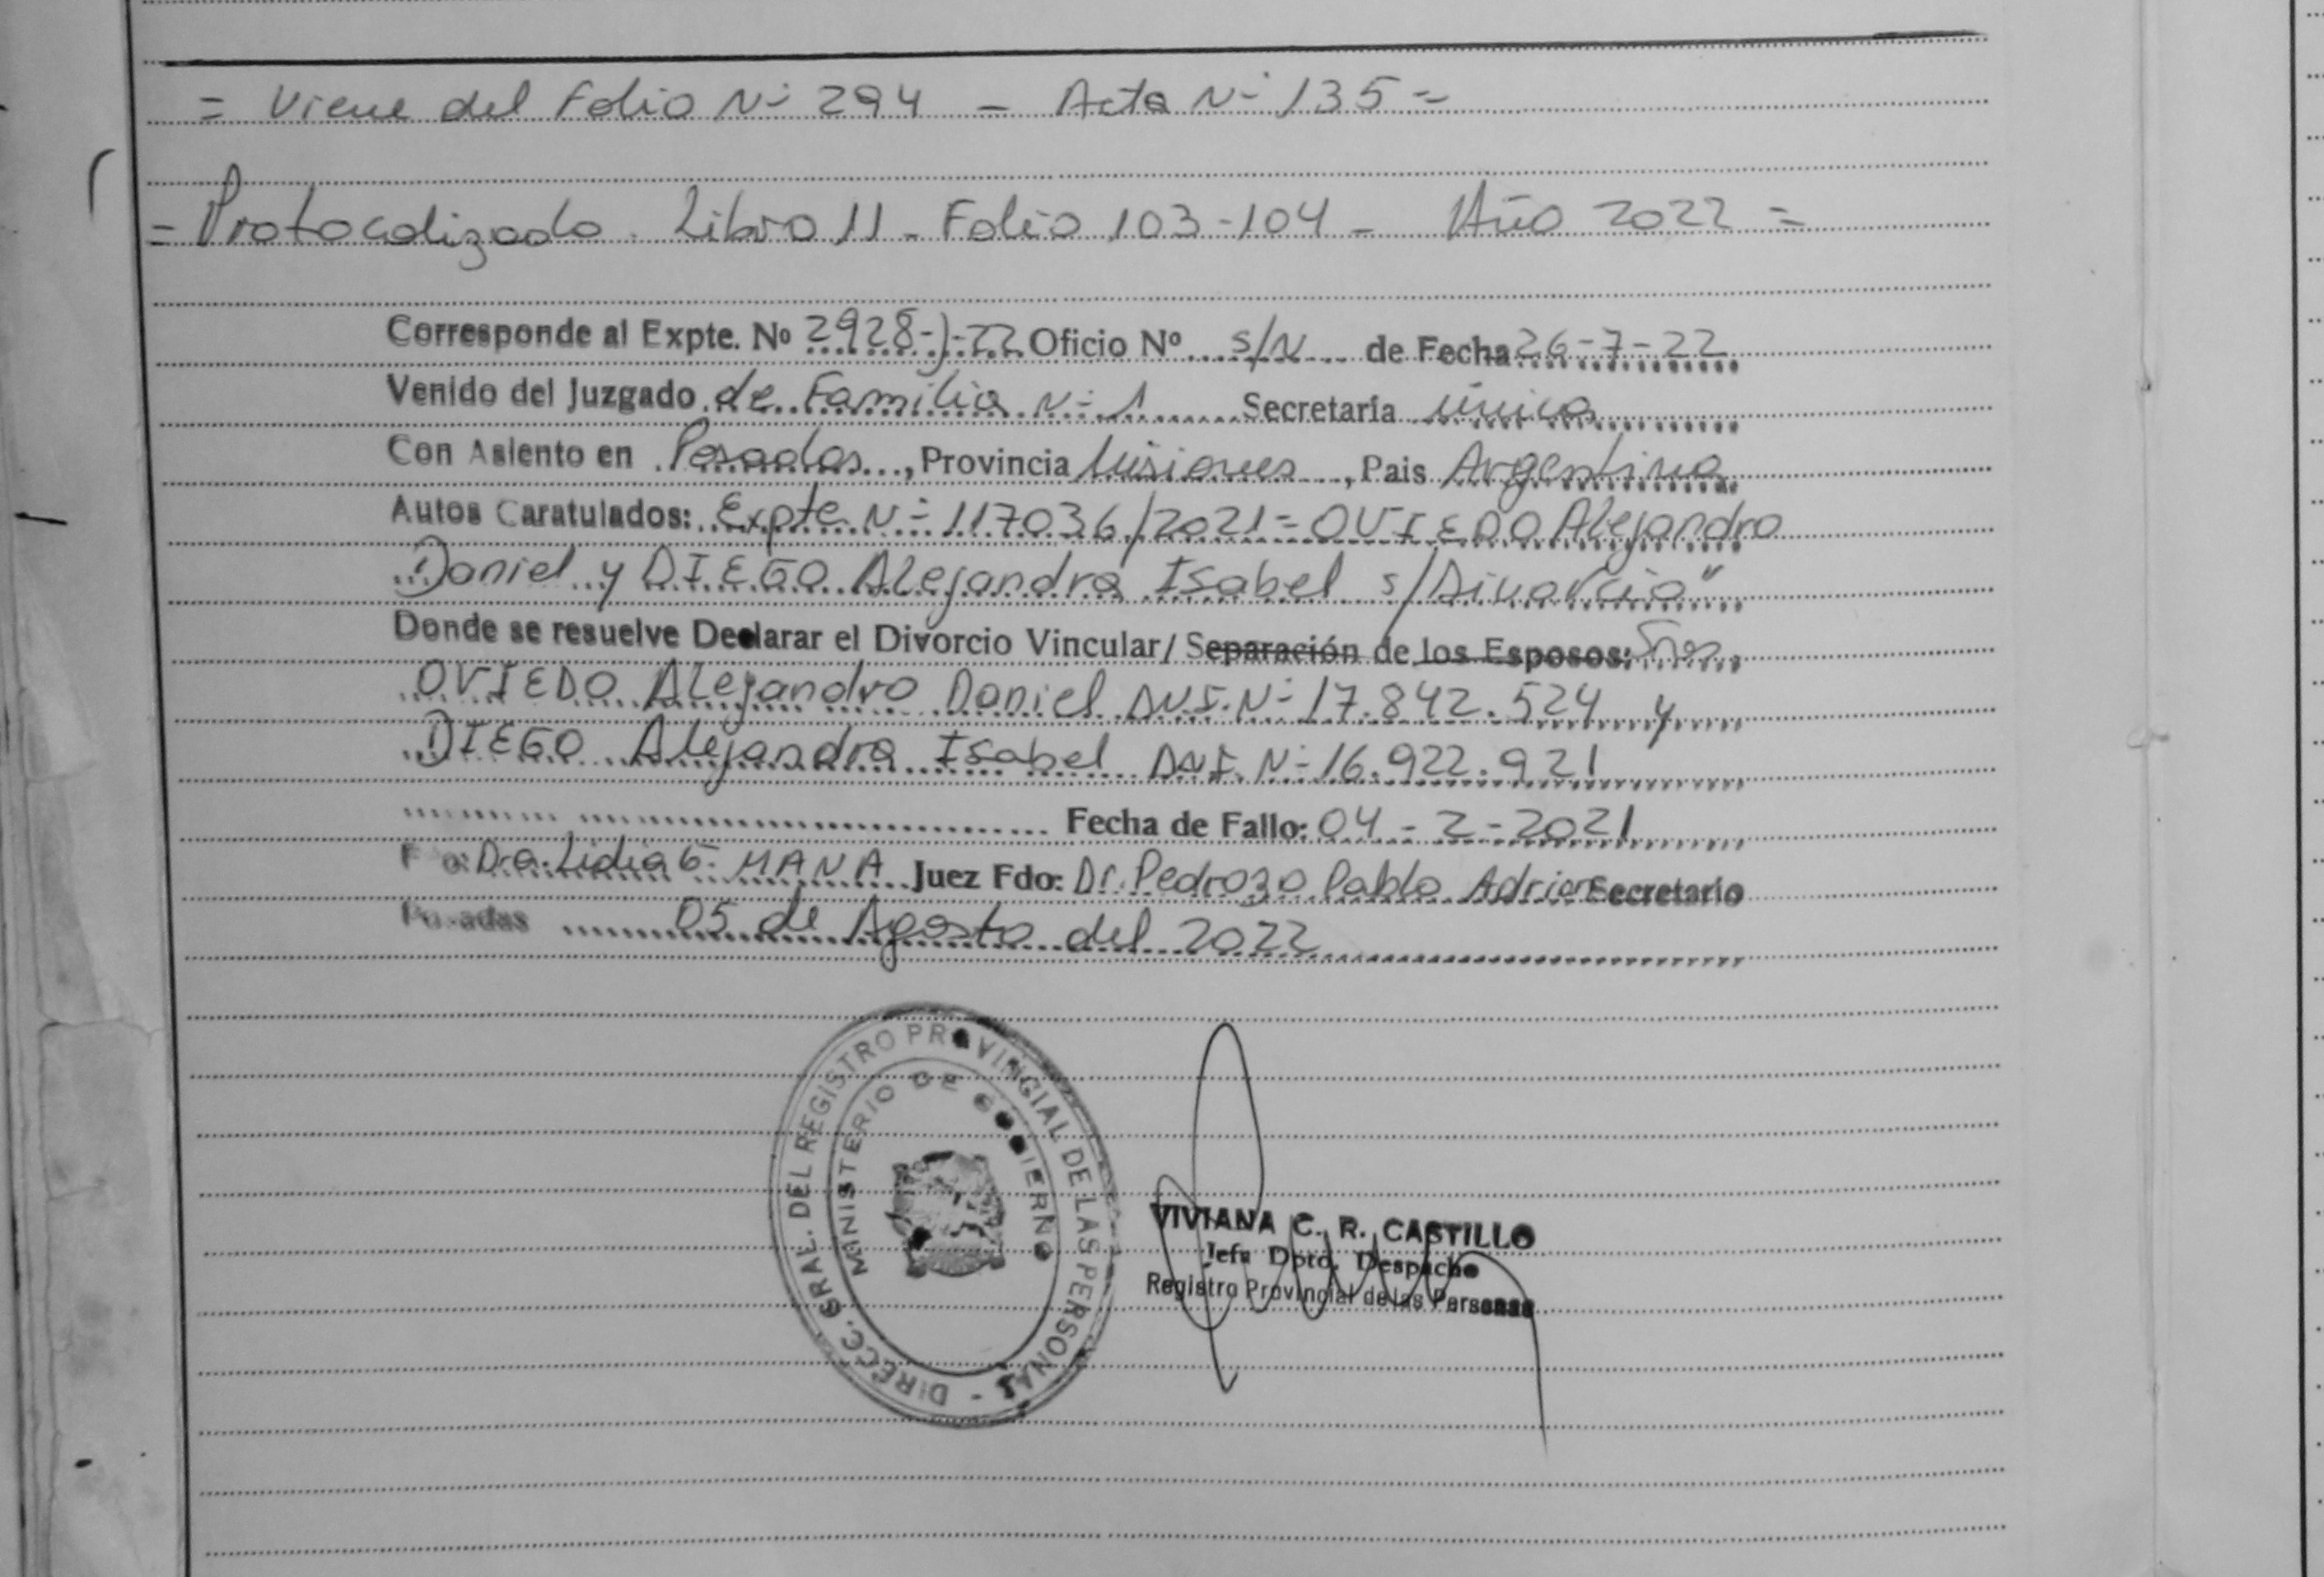 = Viene del Folio Nº 294 - Acta Nº 135 =
= Protocolizado. Libro 11 - Folio 103-104 - Año 2022 =
Corresponde al Expte. Nº 2928-J-22 Oficio Nº s/N de Fecha 26-7-22
Venido del Juzgado de Familia Nº 1 Secretaría única
Con Asiento en Posadas, Provincia Misiones, Pais Argentina
Autos Caratulados: Expte Nº 117036/2021= OVIEDO Alejandro
Daniel y DIEGO Alejandra Isabel s/Divorcio"
Donde se resuelve Declarar el Divorcio Vincular/ Separación de los Esposos: Sres
OVIEDO Alejandro Daniel DNI. Nº 17.842.524 y
DIEGO Alejandra Isabel DNI. Nº 16.922.921
Fecha de Fallo: 04-2-2021
Fdo: Dra. Lidia G. MANA Juez Fdo: Dr. Pedrozo Pablo Adrian Secretario
Posadas 05 de Agosto del 2022
DIRECC. GRAL. DEL REGISTRO PROVINCIAL DE LAS PERSONAS -
MINISTERIO DE GOBIERNO
VIVIANA C. R. CASTILLO
Jefa Dpto. Despacho
Registro Provincial de las Personas